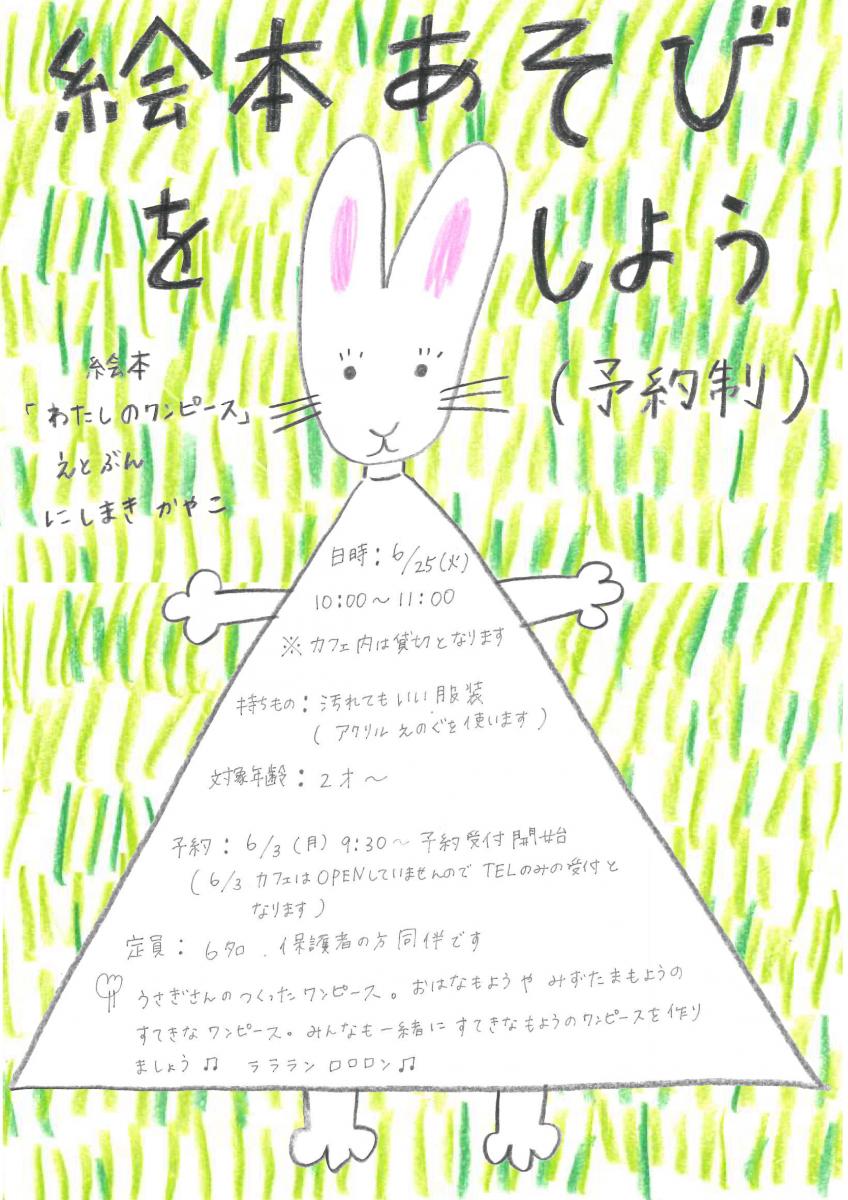 絵本あそび
をしよう
(予約制)
絵本
「わたしのワンピース」
えとぶん
にしまきかやこ
日時：6/25(火)
10:00～11:00
※カフェ内は貸切となります
持ちもの：汚れてもいい服装
(アクリルえのぐを使います)
対象年齢：2才～
予約：6/3(月) 9:30～予約受付開始
(6/3 カフェはOPENしていませんので TELのみの受付と
なります)
定員：6名．保護者の方同伴です
うさぎさんのつくったワンピース。おはなもようや みずたまもようの
すてきなワンピース。みんなも一緒に すてきなもようのワンピースを作り
ましょう♫ ララランロロロン♫